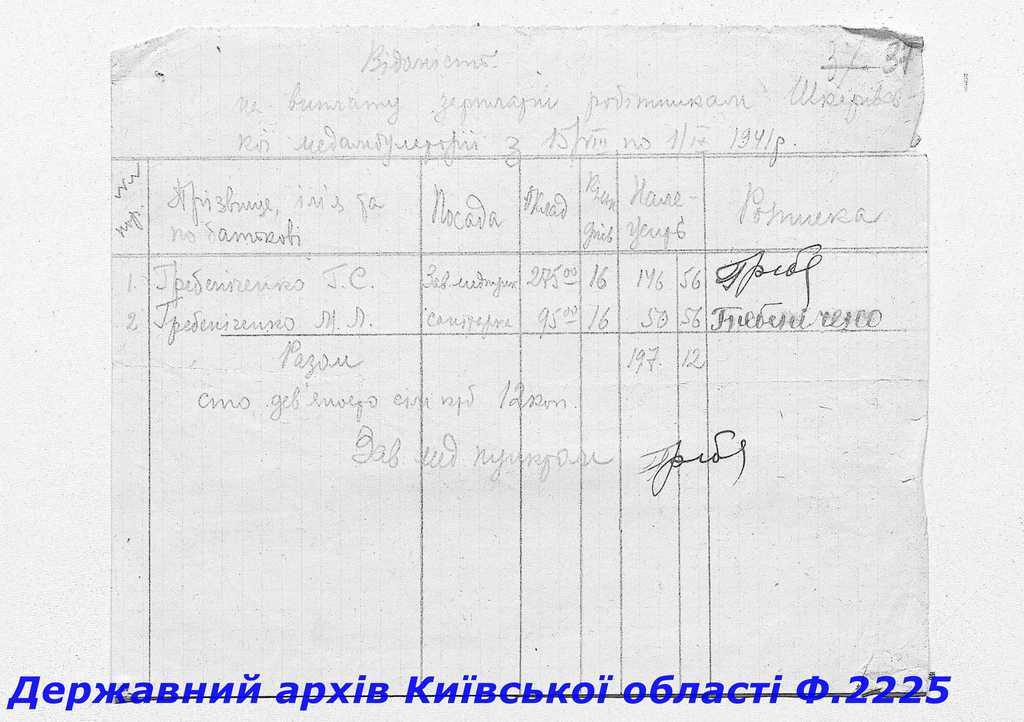 37 37
Відомість
на виплату зарплати робітникам Шкарівсь-
кої медамбулаторії з 15/VIII по 1/IX 1941р.
Прізвище, ім'я та по батькові Посада Оклад днів Нале-жить Розписка
1. Гребеніченко Г.С. Зав. медпунк 275 00 16 146 56
2 Гребеніченко М.Л. санітарка 95 00 16 50 56 Гребеніченко
Разом 197. 12
сто дев'яносто сім крб 12 коп.
Зав. мед пунктом
Державний архів Київської області Ф.2225